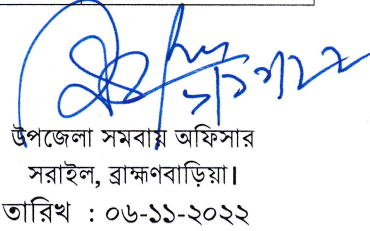 উপজেলা সমবায় অফিসার
সরাইল, ব্রাহ্মণবাড়িয়া।
তারিখ : ০৬-১১-২০২২